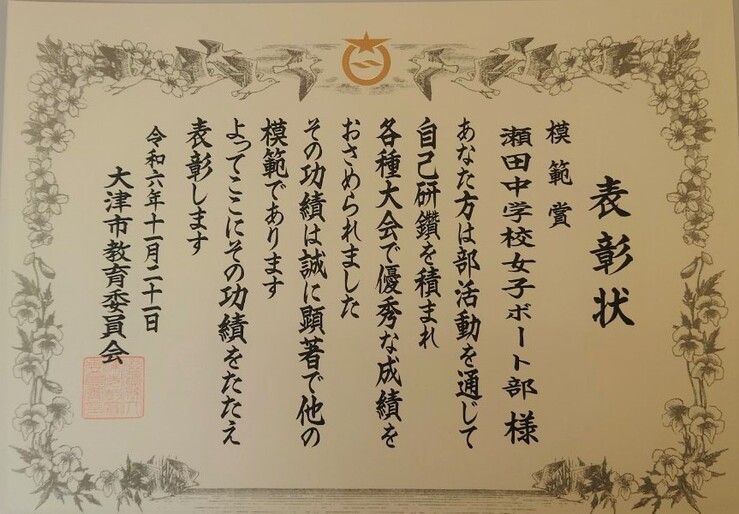 表彰状
模範賞
瀬田中学校女子ボート部 様
あなた方は部活動を通じて
自己研鑽を積まれ
各種大会で優秀な成績を
おさめられました
その功績は誠に顕著で他の
模範であります
よってここにその功績をたたえ
表彰します
令和六年十一月二十一日
大津市教育委員会